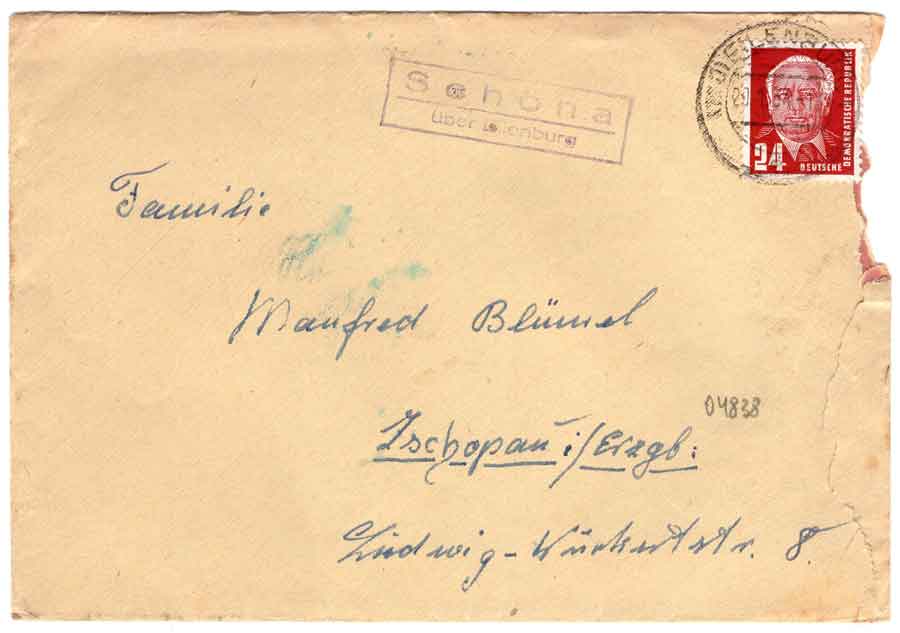 Schöna
über Eilenburg
EILENBURG
24
DEUTSCHE
DEMOKRATISCHE REPUBLIK
Familie
Manfred Blümel
04838
Zschopau i/Erzgb:
Ludwig-Würkertstr. 8